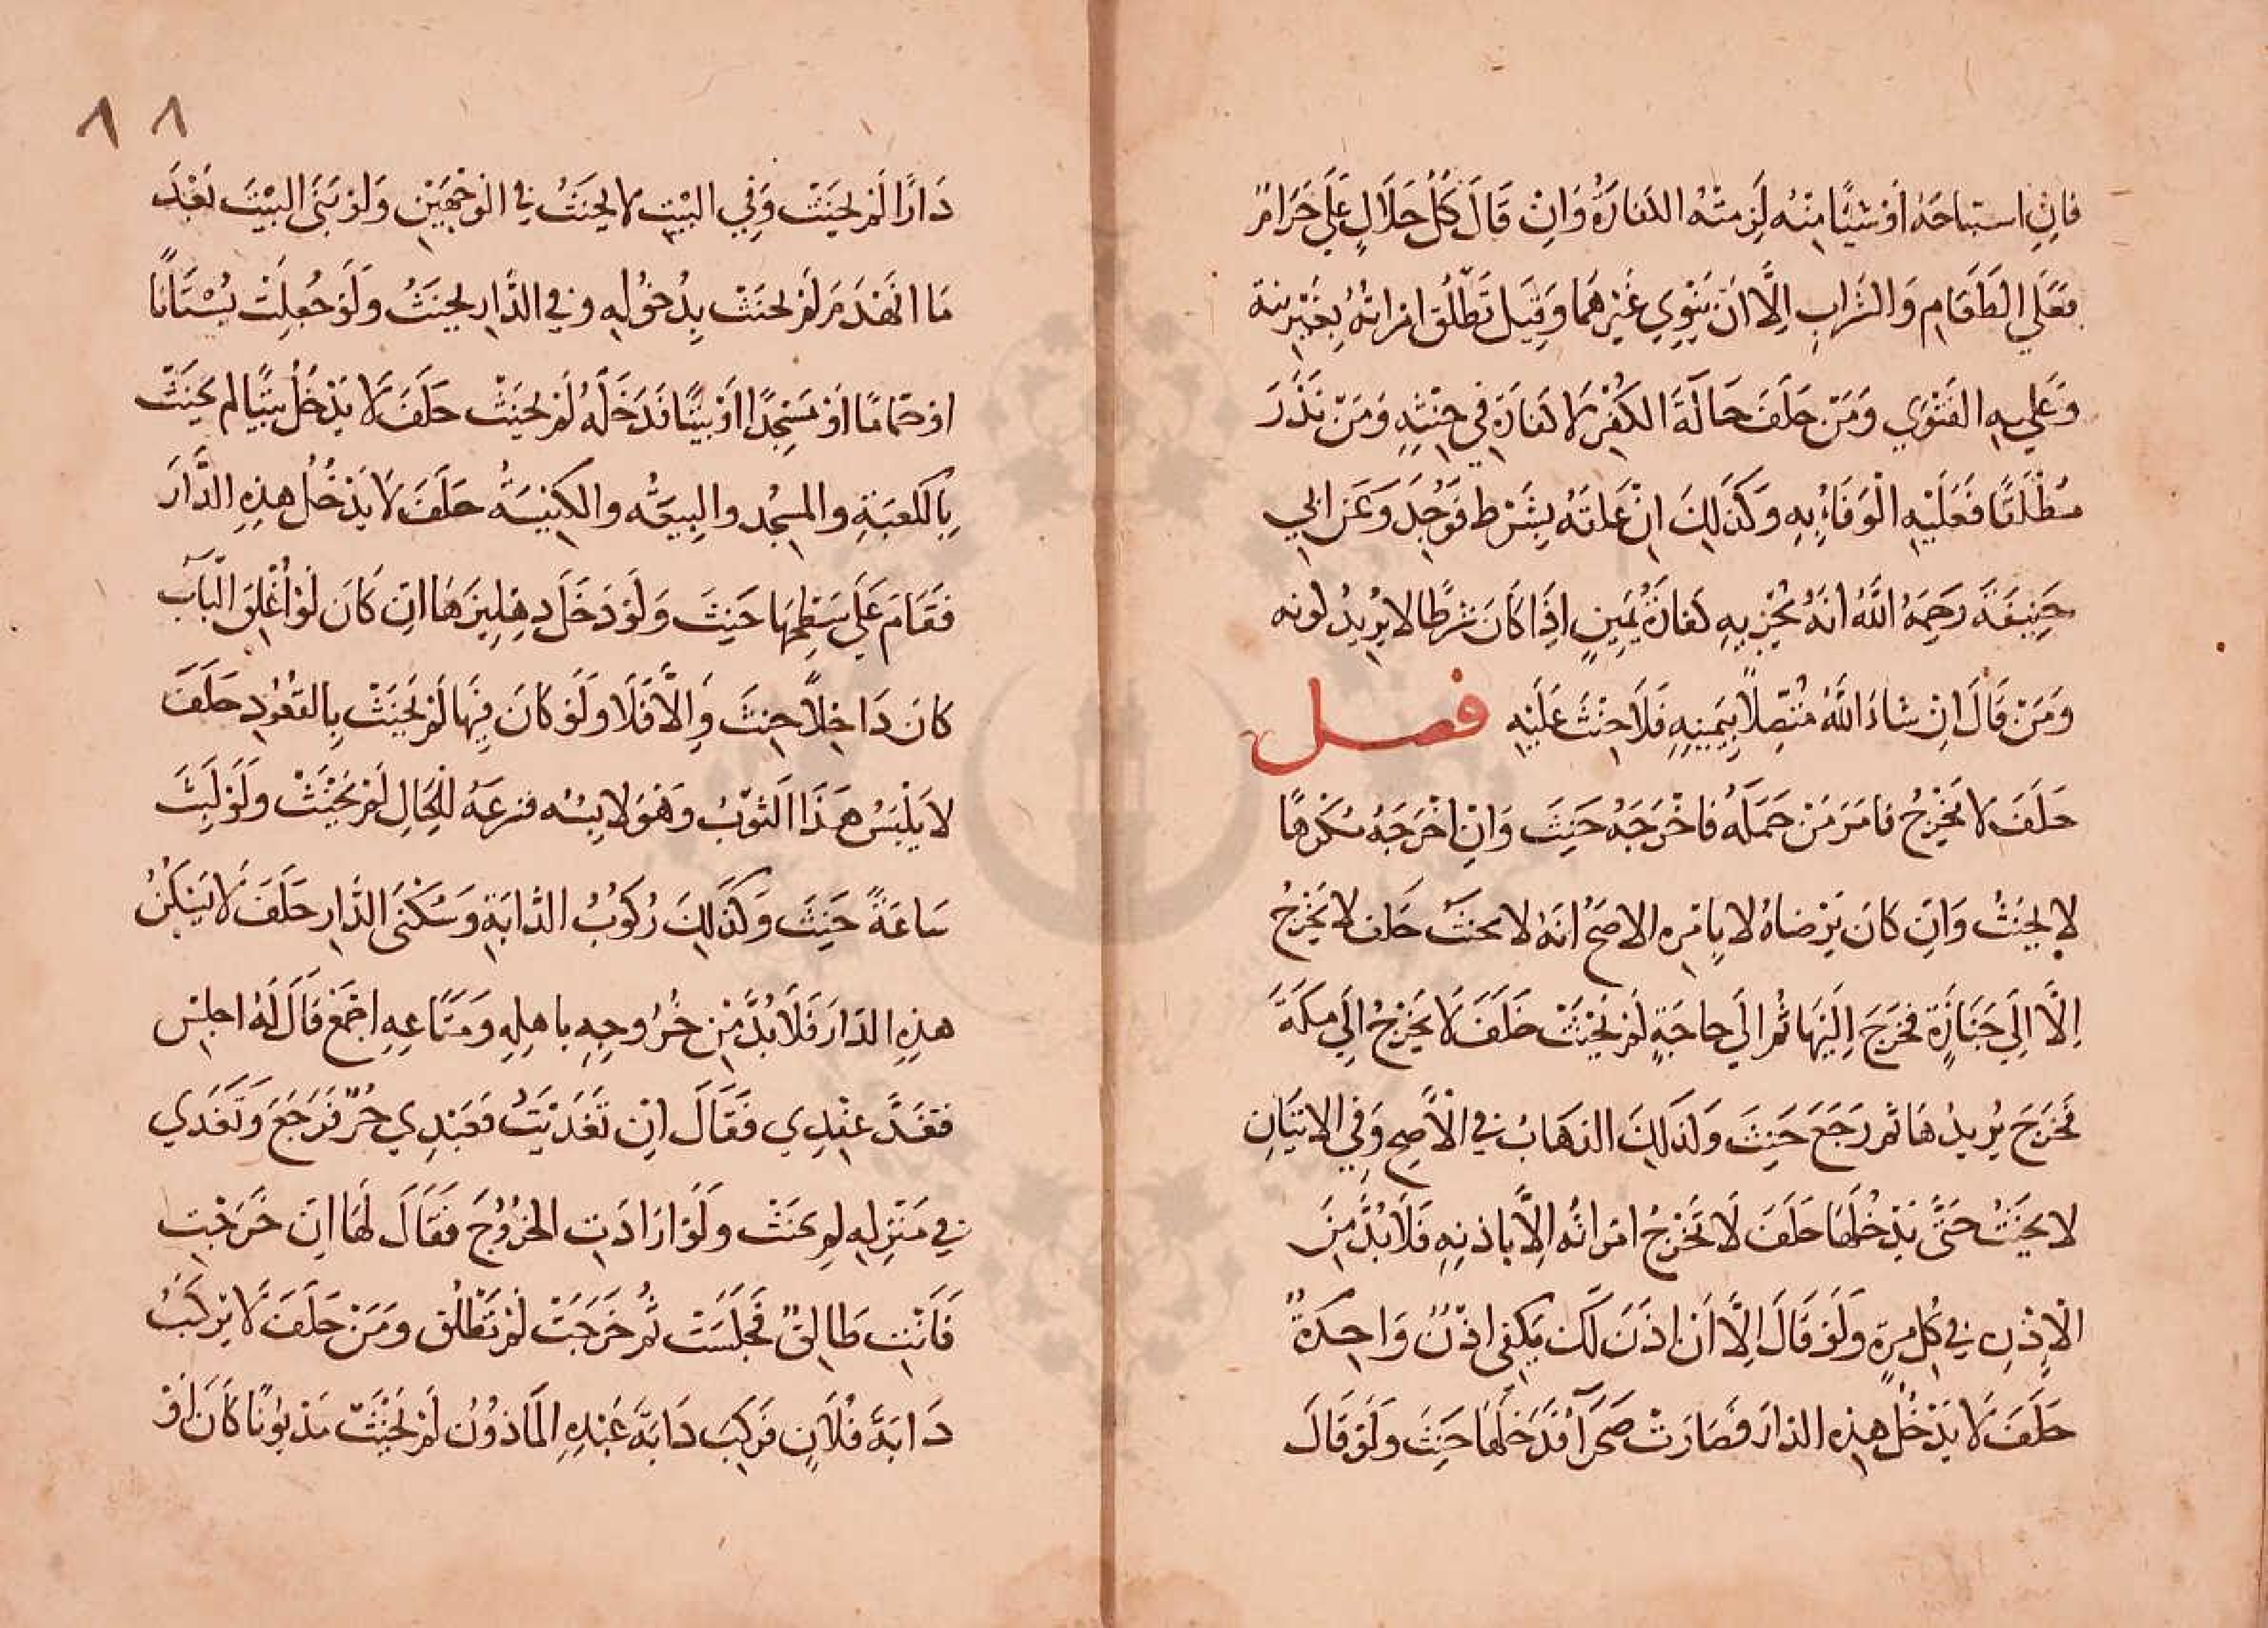 فَاِنِ استباحَهُ اَوْشَيْئًا مِنْه لَزِمَتْهُ الكفارَةُ وَاِنْ قَالَ كُلُّ حَلَالٍ عَلَيَّ حَرَامٌ
فعَلَي الطَعَامِ وَالشَرَابِ اِلَّا اَنْ يَنْوِي غَيْرَهُمَا وَقِيلَ تَطْلُقُ امْرَاتُهُ بِغَيْرِنية
وَعَليهِ الفَتْوَي وَمَنْ حَلَفَ حَالَةَ الكُفْرِ لَا كفارَة فِي حِنْثِهِ وَمَنْ نَذَرَ
مُطْلَقًا فَعَلَيْهِ الْوَفَاءُ بِهِ وَكَذلِكَ اِنْ عَلقَهُ بِشَرْط فَوُجِدَ وَعَنْ ابي
حَنِيفَةَ رَحِمَهُ اللَّهُ اَنهُ يُجْزِيهِ كفارَةُ يَمِينٍ اِذَا كَانَ شَرطًا لا يُرِيدُ كونه
وَمَنْ قَالَ اِنْ شاءَ اللَّهُ مُتصِلًا بِيَمِينِهِ فَلَا حِنْثَ عَلَيْهِ فصل
حَلَفَ لا يَخْرُجُ فامَرَ مَنْ حَمَلَهُ فاخْرَجَهُ حَنِثَ وَاِنْ اخْرَجَهُ مُكْرهًا
لا يحنَثُ وَاِنْ كانَ يَرْضاهُ لا بِامْرِه الاصَحُّ انَهُ لا يحنَثُ حَلف لا يَخْرُجُ
اِلَّا اِلَي جَنَازَة فخَرَجَ اِلَيْهَا ثُم اِلَي حاجَةٍ لَمْ يَحْنَثْ حَلَفَ لَا يَخْرُجُ اِلَي مَكةَ
فَخَرَجَ يُرِيدُهَا ثُم رَجَعَ حَنِثَ وَكَذلِكَ الذهَابُ فِي الْاَصَحِ وَفِي الاِتيَانِ
لا يَحْنَثُ حَتَّي يَدْخُلَهَا حَلَفَ لَا تَخْرُجُ امْرَاتُه اِلَّا باذنِهِ فَلَابُدَّ مِنَ
الْاِذْنِ فِي كُلِ مرةٍ وَلَوْ قَالَ اِلَّا اَنْ اذَنَ لَكِ يَكفِي اِذْنٌ وَاحِدَةٌ
حَلَفَ لَا يَدْخُلُ هذِهِ الدارَ فصَارَتْ صَحْرَآءَ فدَخَلَهَا حَنِثَ وَلَوْ قَالَ
٨٨
دَارًا لَمْ يَحنَثْ وَفِي البَيْتِ لا يَحْنَثُ فِي الوَجْهَيْنِ وَلَوْ بَنَي البَيْتَ بَعْدَ
مَا انهَدَمَ لَمْ يحنَثْ بِدُخُولِهِ وَفِي الدَّارِ يحنَثُ وَلَوْ جُعِلَتْ بُسْتَانًا
اوْحمامًا اوْ مَسْجِدًا اَوْبَيْتًا فدَخَلَهُ لَمْ يحنَثْ حَلَفَ لَا يَدْخُلُ بَيْتًا لم يحنَثْ
بِالكَعْبَةِ وَالمَسْجِد والبِيعَه والكَنِيسَه حَلَفَ لَا يَدْخُلُ هذِهِ الدَّارَ
فقَامَ عَلَي سَطْحِهَا حَنِثَ وَلَوْ دَخَلَ دِهْلِيزَهَا اِنْ كَانَ لَوْ اُغْلِقَ الْبَابُ
كَانَ دَاخِلًا حَنِثَ وَاِلَّا فَلَا وَلَوْ كَانَ فِيهَا لَمْ يَحْنَثْ بِالقُعُودِ حَلَفَ
لا يَلْبَسُ هَذَا الثوْبَ وَهُوَ لابِسُه فنزعَهُ لِلْحَالِ لَمْ يَحْنَثْ وَلَوْ لَبِثَ
سَاعَةً حَنِثَ وَكَذلِكَ رُكُوبُ الدابَةِ وَسُكْنَي الدَّارِ حَلَفَ لَا يَسْكُنُ
هذِهِ الدَارَ فَلَابُدَّ مِنْ خُرُوجِهِ باهلِهِ وَمَتَاعِهِ اجْمَعْ قَالَ لَهُ اجلِسْ
فتغَدَّ عِنْدِي فقَالَ اِنْ تَغَدَيْتُ فعَبْدِي حُرٌّ فرَجَعَ وَتَغَدي
فِي مَنْزِلِهِ لم يحنَثْ وَلَوْ ارَادَتِ الخُرُوجَ فقَالَ لَهَا اِنْ خَرَجْتِ
فَاَنْتِ طَالِقٌ فجَلَسَتْ ثُم خَرَجَتْ لَمْ تَطْلُقْ وَمَنْ حَلَفَ لَا يَرْكَبُ
دَابَةَ فُلَانٍ فرَكِبَ دَابَةَ عَبْدِهِ المَاذُونِ لَمْ يَحْنَثْ مَدْيُونًا كَانَ اَوْ